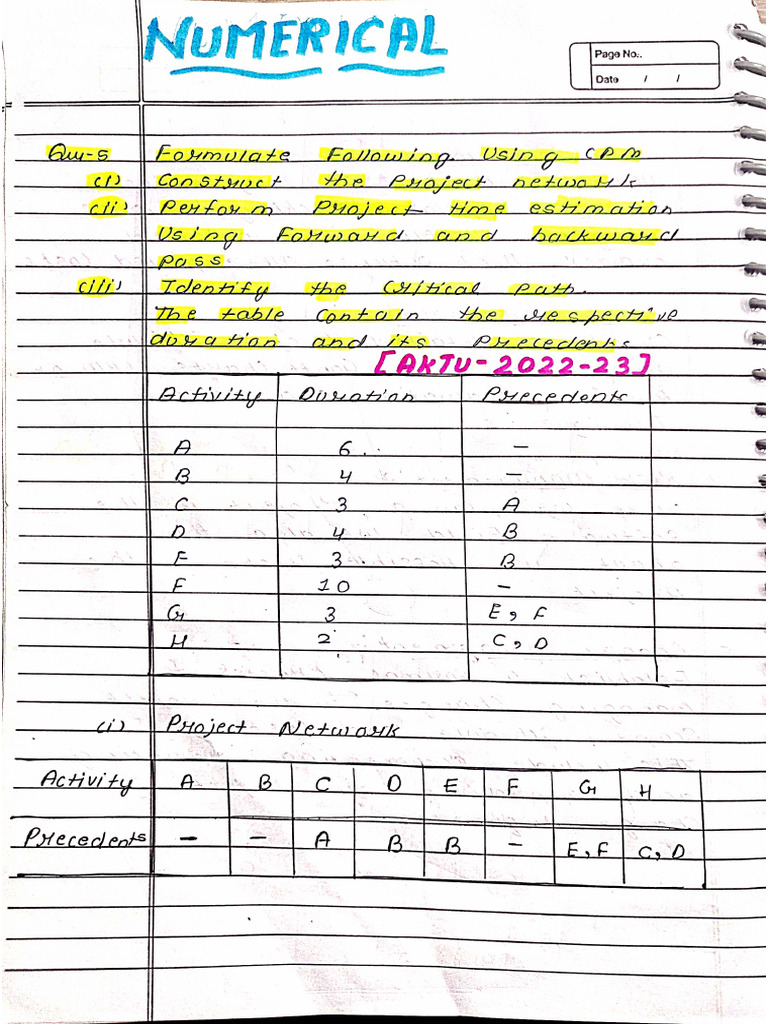 NUMERICAL
Page No..
Date / /
Qu-5 Formulate Following Using CPM
(i) Construct the Project network
(ii) Perform Project time estimation
Using Forward and backward
pass
(iii) Identify the Critical Path.
The table Contain the respective
duration and its Precedents
[AKTU-2022-23]
Activity Duration Precedents
A 6 -
B 4 -
C 3 A
D 4 B
F 3 B
F 10 -
G 3 E, F
H 2 C, D
(i) Project Network
Activity A B C D E F G H
Precedents - - A B B - E, F C, D